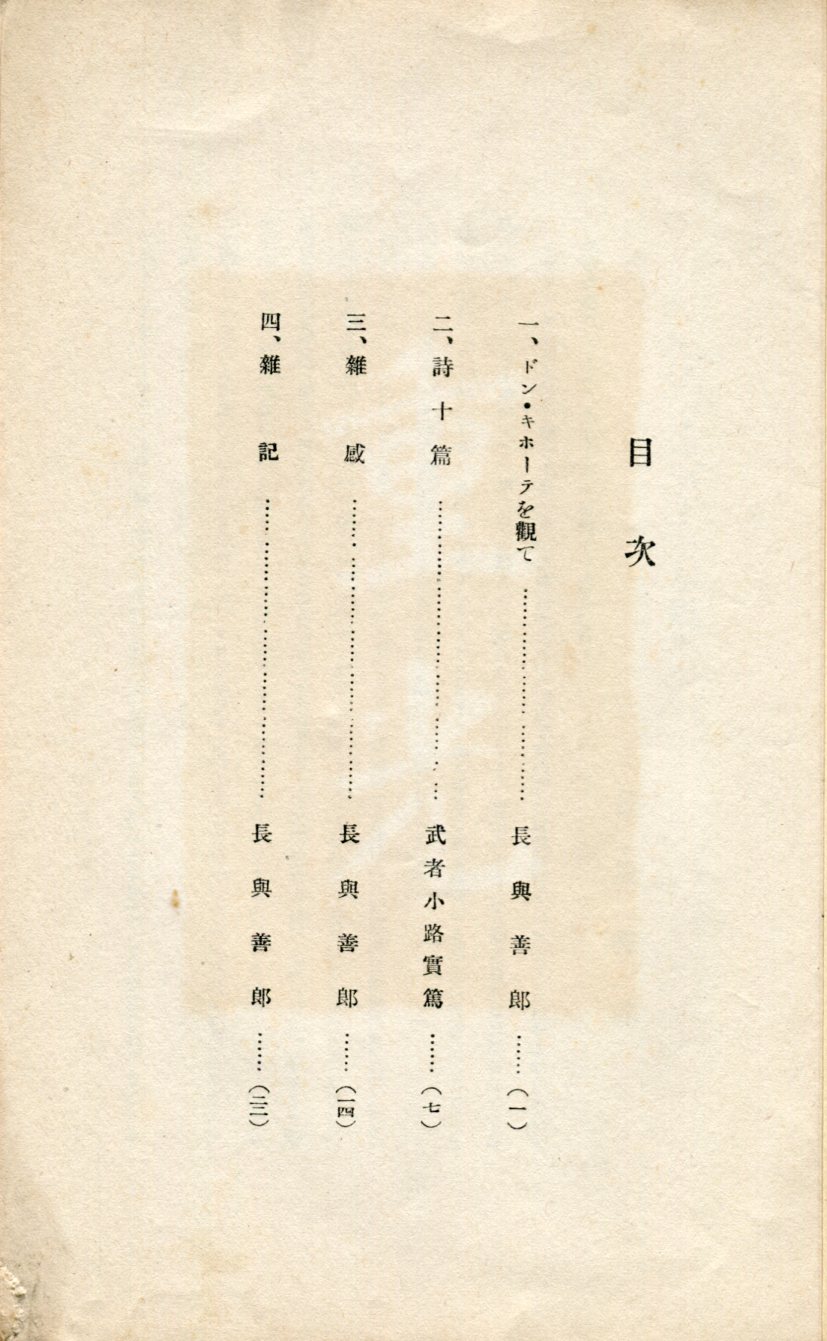 目次
一、ドン・キホーテを觀て……………………長與善郎……(一)
二、詩十篇……………………武者小路實篤……(七)
三、雜感……………………長與善郎……(一四)
四、雜記……………………長與善郎……(二三)